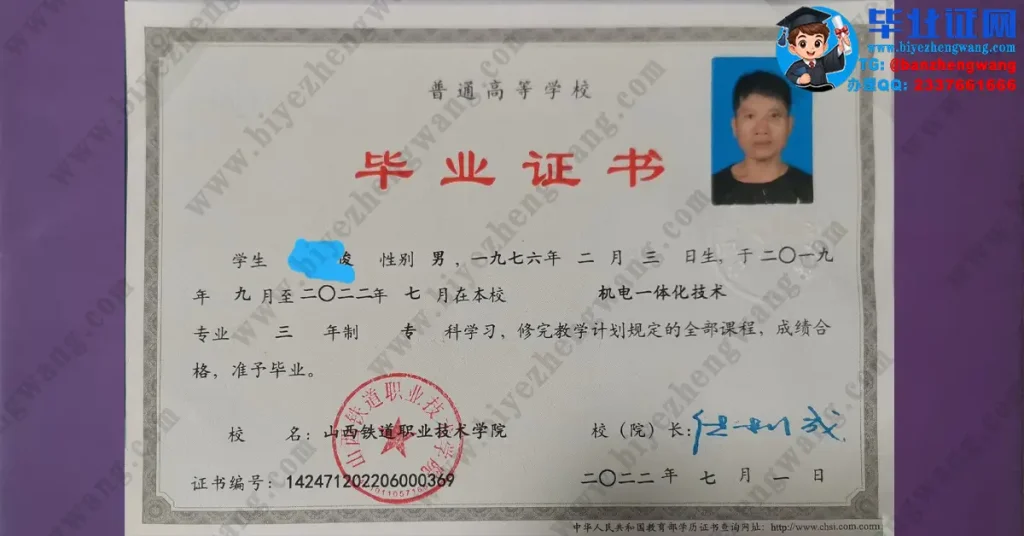 毕业证网
www.biyezhengwang.com
TG: @banzhengwang
办理QQ: 2337661666
普通高等学校
毕业证书
学生 俊 性别 男，一九七六年 二 月 三 日生，于二〇一九
年 九 月至二〇二二年 七 月在本校 机电一体化技术
专业 三 年制 专 科学习，修完教学计划规定的全部课程，成绩合
格，准予毕业。
山西铁道职业技术学院
校 名：山西铁道职业技术学院 校（院）长：
证书编号：142471202206000369 二〇二二年 七 月 一 日
中华人民共和国教育部学历证书查询网址：http://www.chsi.com.com/
www.biyezhengwang.com